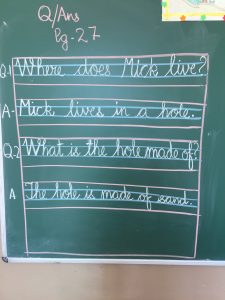 Q/Ans
Pg-27
Q.1 Where does Mick live?
A- Mick lives in a hole.
Q.2 What is the hole made of?
A The hole is made of sand.